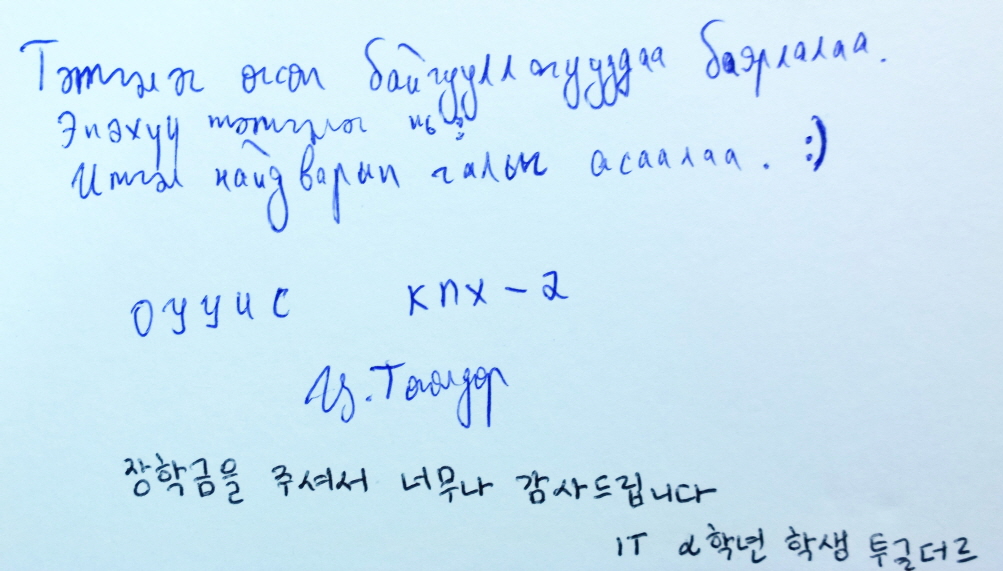 Тэтгэлэг өгсөн байгууллагууддаа баярлалаа.
Энэхүү тэтгэлэг нь
Итгэл найдварын галыг асаалаа. :)
ОУУИС КПХ-2
Ц. Төгөлдөр
장학금을 주셔서 너무나 감사드립니다
IT 2학년 학생 투굴더르